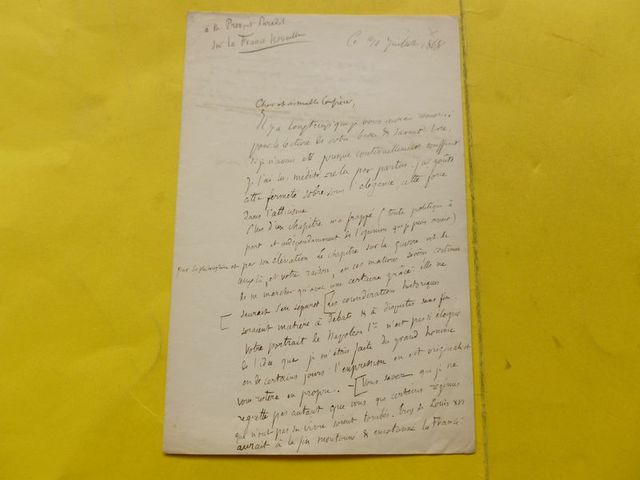 à M. Prevost Paradol
sur La France Nouvelle
Ce 20 juillet 1868
Cher et aimable Confrère,
Il y a longtemps que je vous aurais remercié
pour la lecture de votre beau & savant livre,
si je n'avais été presque continuellement souffrant
Je l'ai lu, médité, relu par parties. J'ai goûté
cette fermeté sobre sous l'élégance cette force
dans l'atticisme
Plus d'un chapitre m'a frappé (toute politique à
part et indépendamment de l'opinion que je puis avoir)
par son élévation le chapitre sur la guerre est de
la philosophie et
ampli, et votre raison, en ces matières
de ne marcher qu'avec une certaine grâce elle ne
saurait s'en séparer [Les considérations historiques
seraient matière à débat & à disputes sans fin.
Votre portrait de Napoléon 1er n'est pas si éloigné
de l'idée que je m'étais faite du grand homme
en de certains jours l'expression en est originale et
vous restera en propre. – [Vous savez que je ne
regrette pas autant que vous que certains régimes
qui n'ont pas su vivre soient tombés. Louis XVI
aurait à la fin & la France